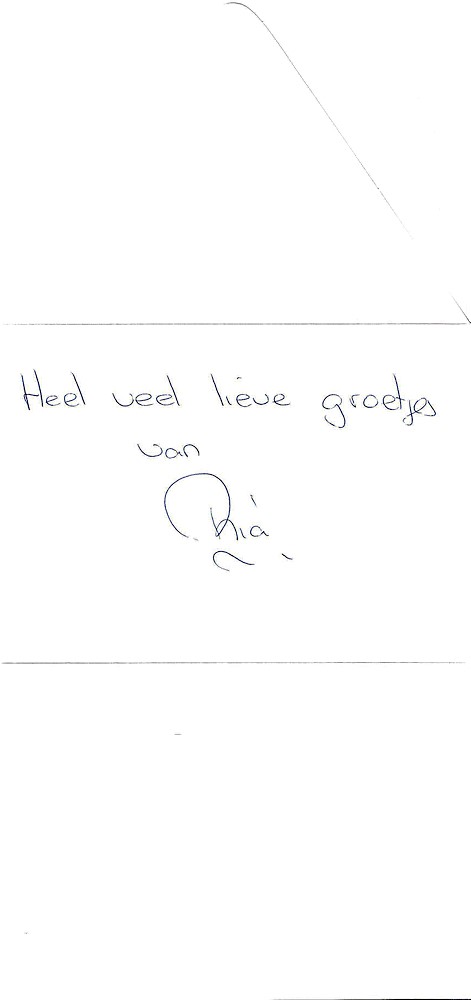 Heel veel lieve groetjes
van
Ria